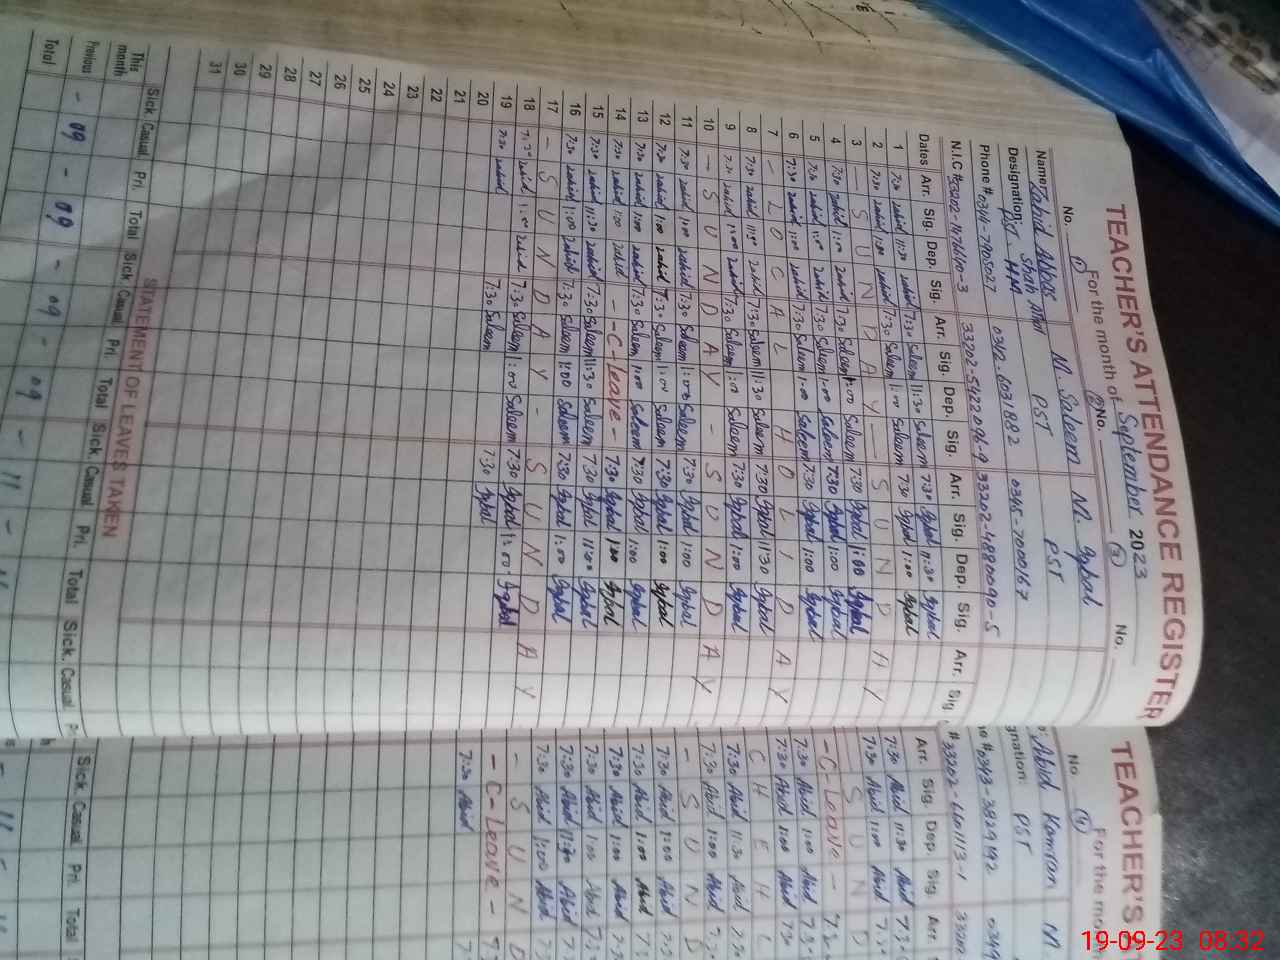 TEACHER'S ATTENDANCE REGISTER
For the month of September 2023
No. 1 No. 2 No. 3 No.
Name: Zahid Abbas M. Saleem M. Iqbal
Designation: PST PST
Phone # 0342-6031882 0345-7000167
N.I.C # 33202-5422096-9 33202-4880090-5
Dates Arr. Sig. Dep. Sig. Arr. Sig. Dep. Sig. Arr. Sig. Dep. Sig. Arr. Sig.
1 7:30 zahid 11:30 zahid 7:30 Saleem 11:30 Saleem 7:30 Iqbal 11:30 Iqbal
2 7:30 zahid 1:00 zahid 7:30 Saleem 1:00 Saleem 7:30 Iqbal 1:00 Iqbal
3 - S U N D A Y - S U N D A Y
4 7:30 zahid 1:00 zahid 7:30 Saleem 1:00 Saleem 7:30 Iqbal 1:00 Iqbal
5 7:30 zahid 1:00 zahid 7:30 Saleem 1:00 Saleem 7:30 Iqbal 1:00 Iqbal
6 7:30 zahid 1:00 zahid 7:30 Saleem 1:00 Saleem 7:30 Iqbal 1:00 Iqbal
7 - L O C A L H O L I D A Y
8 7:30 zahid 11:30 zahid 7:30 Saleem 11:30 Saleem 7:30 Iqbal 11:30 Iqbal
9 7:30 zahid 1:00 zahid 7:30 Saleem 1:00 Saleem 7:30 Iqbal 1:00 Iqbal
10 - S U N D A Y - S U N D A Y
11 7:30 zahid 1:00 zahid 7:30 Saleem 1:00 Saleem 7:30 Iqbal 1:00 Iqbal
12 7:30 zahid 1:00 zahid 7:30 Saleem 1:00 Saleem 7:30 Iqbal 1:00 Iqbal
13 7:30 zahid 1:00 zahid 7:30 Saleem 1:00 Saleem 7:30 Iqbal 1:00 Iqbal
14 7:30 zahid 1:00 zahid - C-Leave - 7:30 Iqbal 1:00 Iqbal
15 7:30 zahid 11:30 zahid 7:30 Saleem 11:30 Saleem 7:30 Iqbal 11:00 Iqbal
16 7:30 zahid 1:00 zahid 7:30 Saleem 1:00 Saleem 7:30 Iqbal 1:00 Iqbal
17 - S U N D A Y - S U N D A Y
18 7:30 zahid 1:00 zahid 7:30 Saleem 1:00 Saleem 7:30 Iqbal 1:00 Iqbal
19 7:30 zahid 7:30 Saleem 7:30 Iqbal
20
21
22
23
24
25
26
27
28
29
30
31
STATEMENT OF LEAVES TAKEN
Sick. Casual Pri. Total Sick. Casual Pri. Total Sick. Casual Pri. Total Sick. Casual
This month
Previous - 09 - 09 - 09 - 09 - 11 -
Total
TEACHER'S
For the mon
No. 4
Abid Kamran M
gnation: PST
Arr. Sig. Dep. Sig. Arr
7:30 Abid 11:30 Abid
7:30 Abid 1:00 Abid
S U N D
- C-Leave -
7:30 Abid 1:00 Abid
7:30 Abid 1:00 Abid
C H E H L
7:30 Abid 11:30 Abid
7:30 Abid 1:00 Abid
- S U N D
7:30 Abid 1:00 Abid
7:30 Abid 1:00 Abid
7:30 Abid 1:00 Abid
7:30 Abid 1:00 Abid
7:30 Abid 11:30 Abid
7:30 Abid 1:00 Abid
- S U N D
- C-Leave -
7:30 Abid
Sick Casual Pri. Total
19-09-23 08:32